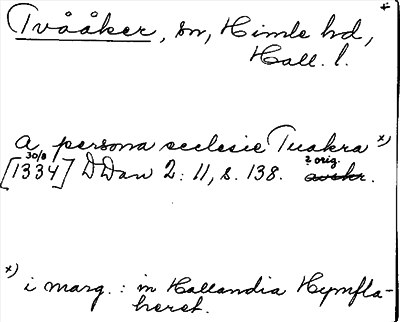 +
Tvååker, sn, Himle hd,
Hall. l.
a persona ecclesie Tuakra x)
30/8 2 orig.
[1334] DDan 2: 11, s. 138. avskr.
x) i marg.: in Hallandia Hymfla-
heret.